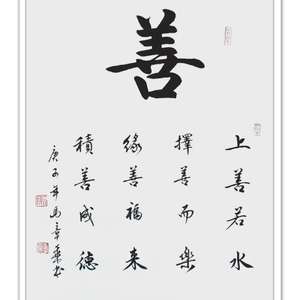 善
上善若水
擇善而樂
緣善福来
積善成德
庚子年